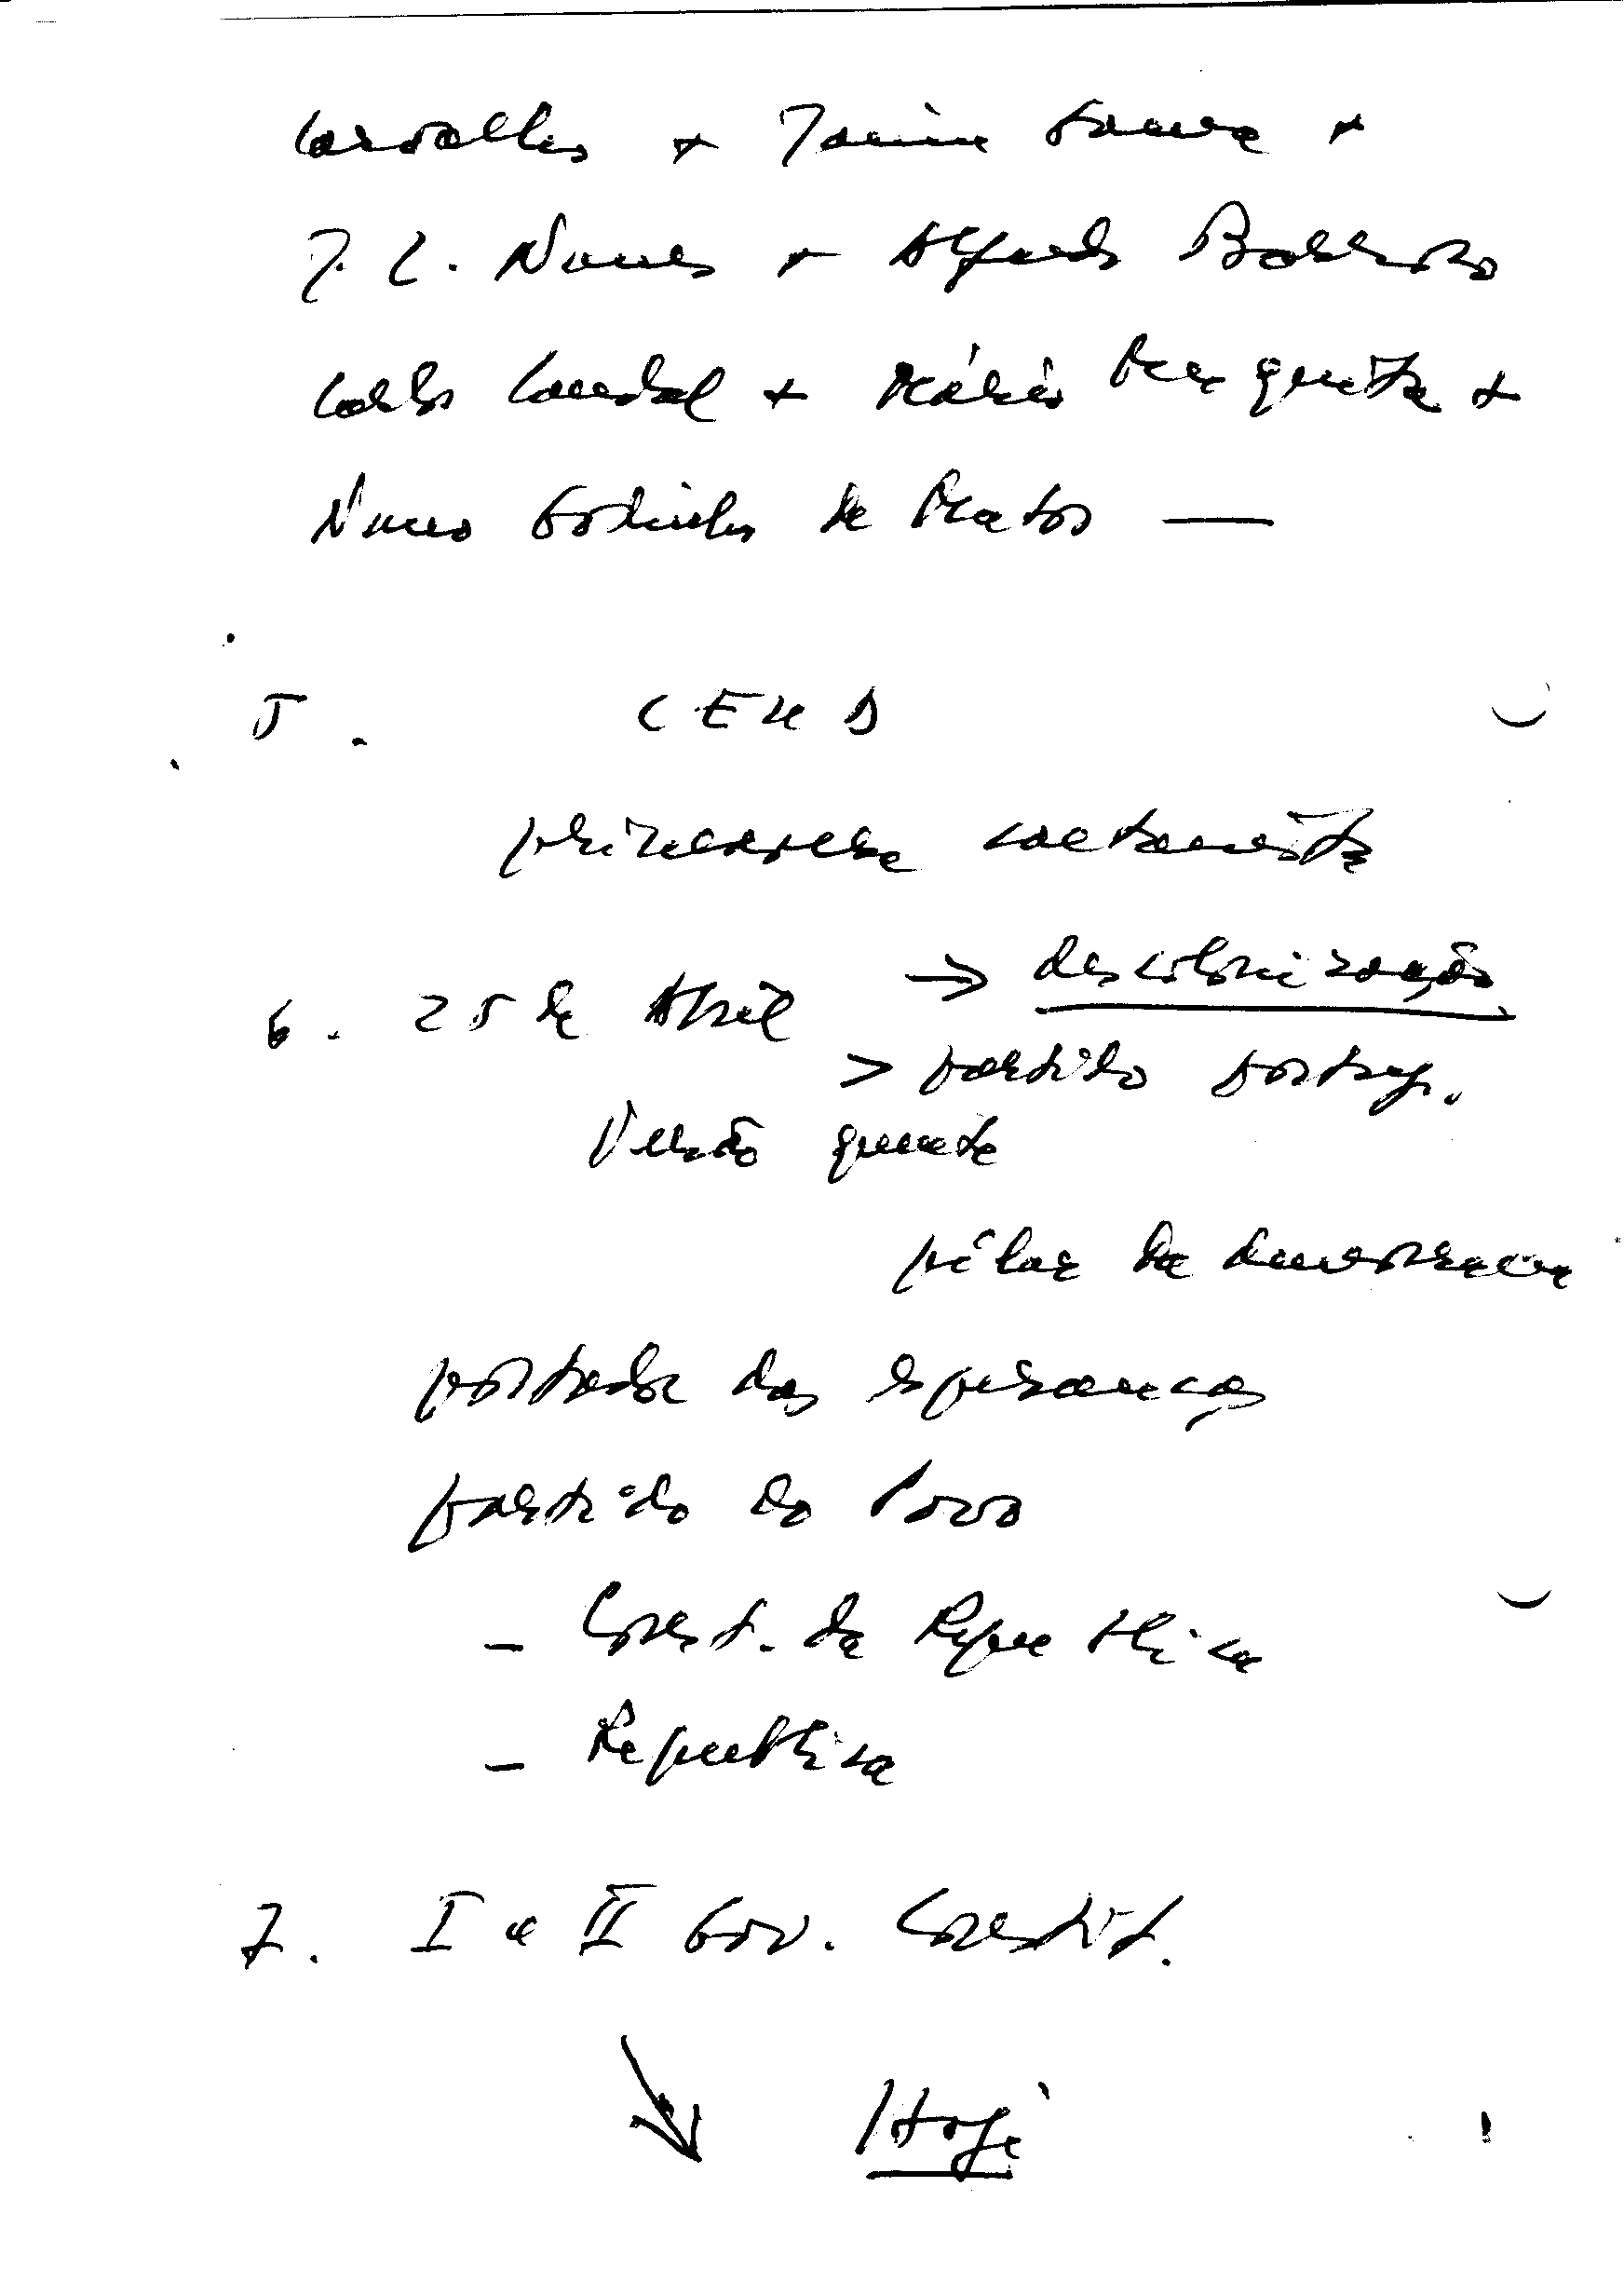 Carvalho + Jaime Gama +
J. L. Nunes + Alfredo Barroso
Carlos Candal + Mário Mesquita +
Nuno Godinho de Matos —
5. CEUD
primavera caetanista
6. 25 de Abril → descolonização
> partido portug.
Verão quente
pilar da democracia
portador das esperanças
partido do Povo
- Const. da República
- República
7. I e II Gov. Constit.
Hoje